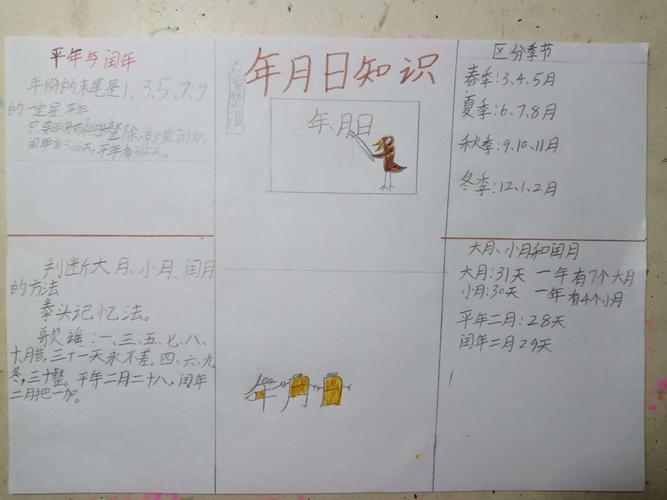 平年与闰年
年份的末尾是1、3、5、7、9
的一定是平年
整除,就是闰年,
闰年有366天,平年有365天。
年月日知识
年、月日
区分季节
春季:3、4、5月
夏季:6、7、8月
秋季:9、10、11月
冬季:12、1、2月
判断大月、小月、闰月
的方法
拳头记忆法。
歌谣:一、三、五、七、八、
十月腊,三十一天永不差。四、六、九
冬,三十整。平年二月二十八,闰年
二月把一加。
年月日
大月、小月和闰月
大月:31天 一年有7个大月
小月:30天 一年有4个小月
平年二月:28天
闰年二月29天